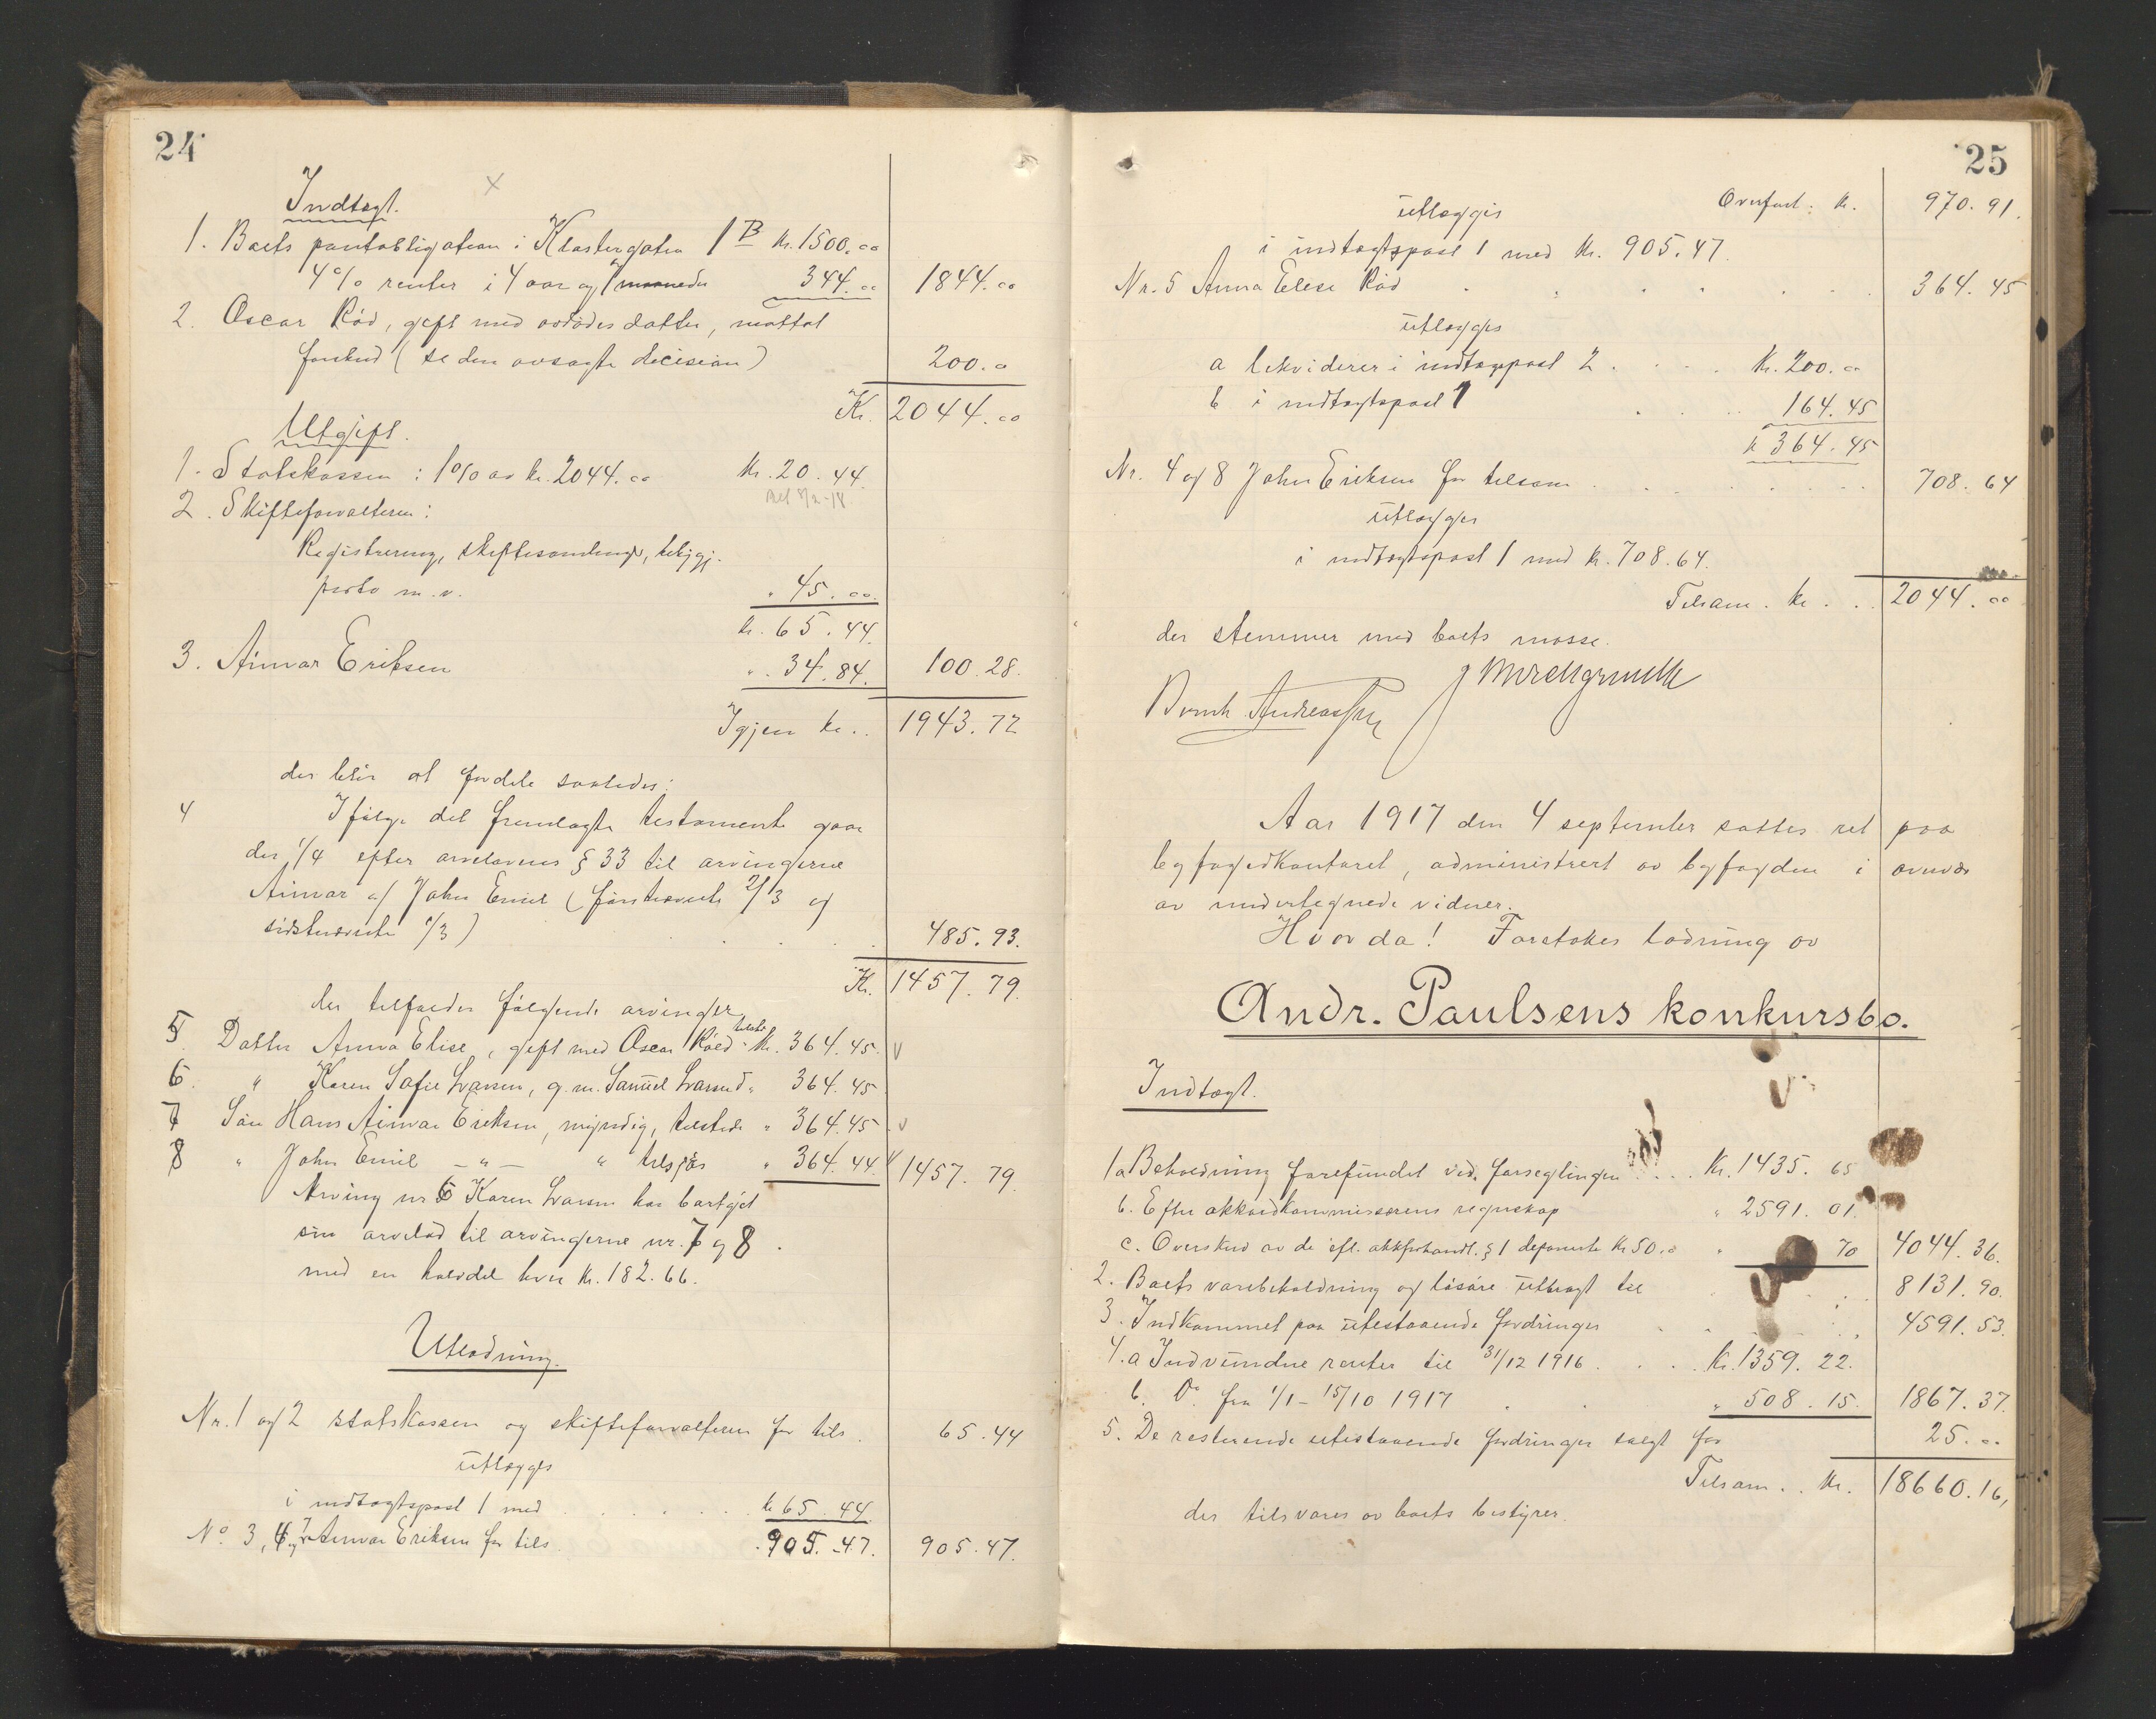 24
Indtægt.
1. Boets pantobligation i Klostergaten 1 B kr. 1500.00
4% renter i 4 aar og maaneder 344.00 1844.00
2. Oscar Röd, gift med avdödes datter, mottat
forskud (se den avsagte decision) 200.00
Kr. 2044.00
Utgift.
1. Statskassen: 1% av kr. 2044.00 kr. 20.44
2. Skifteforvalteren:
Registrering, skiftesamlinger,
porto m.v. " 45.00
kr. 65.44
3. Aimar Eriksen " 34.84. 100.28.
Igjen kr. 1943.72
der blir at fordele saaledes:
4 Ifölge det fremlagte testamente gaar
der 1/4 efter arvelovens § 33 til arvingerne
Aimar og John Emil (förstnævnte 2/3 og
sidstnævnte 1/3) 485.93.
Kr. 1457.79.
der tilfalder fölgende arvinger
5. Datter Anna Elise, gift med Oscar Röed kr. 364.45. v
6. " Karen Sofie Larsen, g.m. Samuel Larsen " 364.45
7 Sön Hans Aimar Eriksen, myndig, tilstede " 364.45 v
8 " John Emil - " - " tilsjös " 364.44 1457.79.
Arving nr 6 Karen Larsen har bortgit
sin arvelod til arvingerne nr. 7 og 8.
med en halvdel hver kr. 182.66.
Utlodning.
Nr. 1 og 2 statskassen og skifteforvalteren for tils. 65.44
utlægges
i indtægtspost 1 med kr 65.44
No. 3, 4, og 7 Aimar Eriksen for tils. 905.47. 905.47.
25
Overfört: kr. 970.91.
utlægges
i indtægtspost 1 med kr. 905.47
Nr. 5 Anna Elise Röd 364.45
utlægges
a likviderer i indtægtspost 2 kr. 200.00
b i indtægtspost 1 164.45
kr 364.45
Nr. 4 og 8 John Eriksen for tilsam 708.64
utlægges
i indtægtspost 1 med kr. 708.64.
Tilsam. kr. 2044.00
der stemmer med boets masse.
Aar 1917 den 4 september sattes ret paa
byfogedkontoret, administrert av byfogden i overvær
av undertegnede vidner.
Hvorda! Foretokes lodning av
Andr. Paulsens konkursbo.
Indtægt.
1 a Beholdning forefundet ved forseglingen kr. 1435.65
b. Efter akkordkommissærens regnskap " 2591.01.
c. Overskud av de efl. akkforhandl. § 1 deponerte kr 50.00 " 70 4044.36.
2. Boets varebeholdning og lösöre utbragt til 8131.90.
3. Indkommet paa utestaaende fordringer 4591.53.
4. a Indvundne renter til 31/12 1916 kr. 1359.22.
b. Do fra 1/1 - 15/10 1917 " 508.15. 1867.37.
5. De resterende utestaaende fordringer solgt for 25.00
Tilsam. kr. 18660.16,
der tilsvares av boets bestyrer.